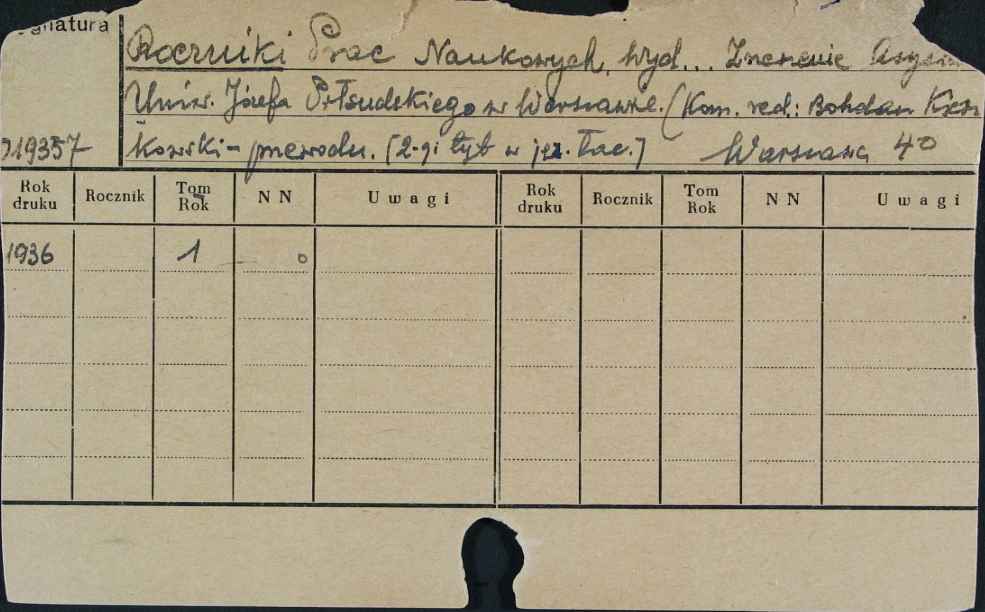 gnatura
Roczniki Prac Naukowych, wyd... Zrzeszenie Asys
Uniw. Józefa Piłsudskiego w Warszawie. (Kom. red.: Bohdan
19357 kowski - przewodn. [2-gi tyt w jęz. łac.] Warszawa 40
Rok druku Rocznik Tom Rok N N Uwagi Rok druku Rocznik Tom Rok N N Uwagi
1936 1 0